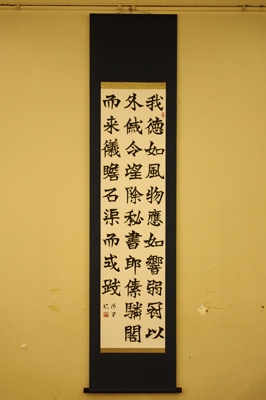 我德如風物應如響弱冠以
外戚令望除秘書郎傃驎閣
而来儀瞻石渠而式踐